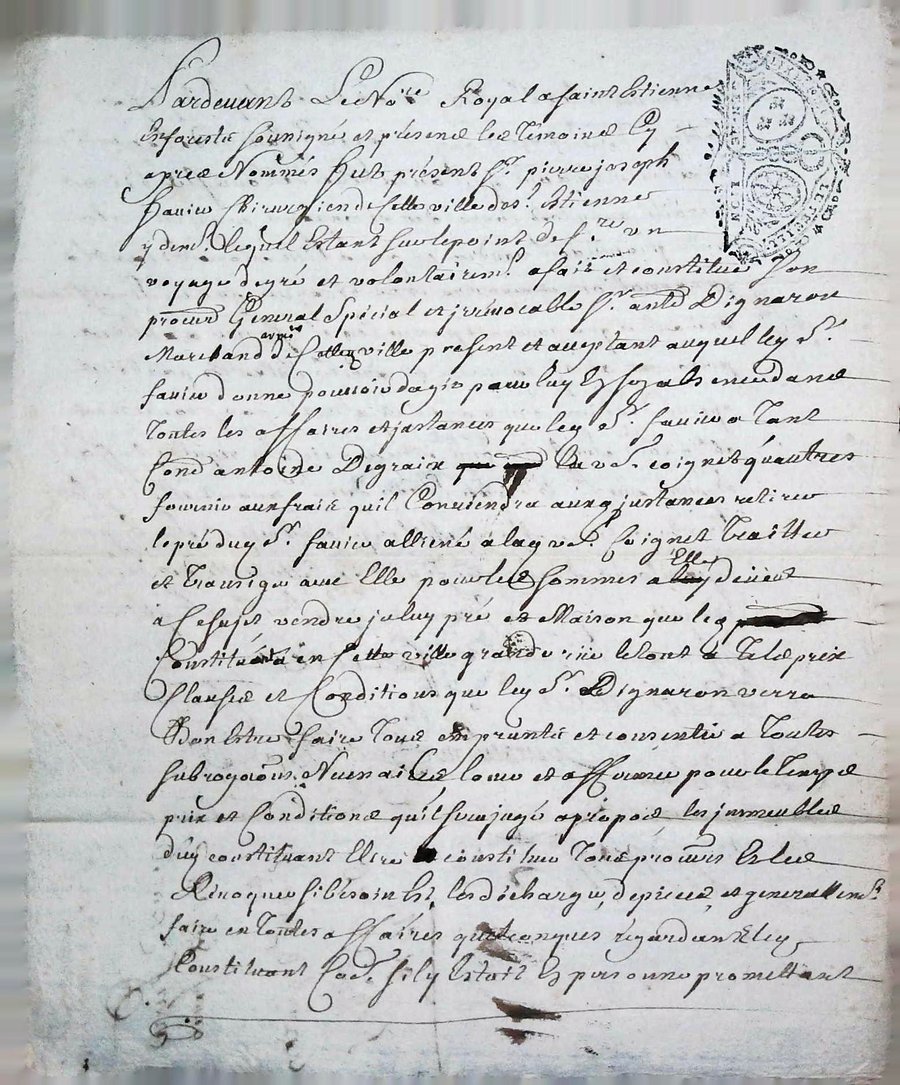 Pardevant Le No.re Royal a Saint Estienne
En forests Soubsigné et présence les Temoins Cy
apres Nommés fut présent S.r pierre joseph
favier Chirurgien de Cette ville de S.t Estienne
y dem.t lequel Estant sur le point de f.re un
voyage de gré et volontairem.t a fait et constitué Son
procur Général Spécial et jrrévocable S.r anth Dignaron
Marchand de Cette ville présent et aceptant auquel ley S.r
favier donne pouvoir dagir pour luy En son absence dans
Toutes les affaires et jnstances que ley S.r favier a Tant
Cond antoine Degraix la v.e Coignet qu'autres
fournir aux frais quil Conviendra auxq jnstances retirer
le pré duy S.r favier alliéné a lay ve Coignet Traitter
et Transiger avec Elle pour les Sommes a Elle deües
a Ce sujet vendre jceluy pré et Maison que ley
Constituant a en Cette ville grande rüe le tout a Tels prix
Clauses et Conditions que ley S.r Dignaron verra
Bon Estre faire Tous emprunts et consentir a Toutes
subrogaõns Necessaires louer et affermer pour le Temps
prix et Conditions qu'il sera jugé apropos les jmmeubles
duy constituant Elire constituer Tous procurs Et les
Révoquer si bésoin Est, les décharger, de pieces, et generallem.t
faire en Toutes affaires quelconques régardant ley
Constituant Co͠e Sil y Estoit En personne promettant